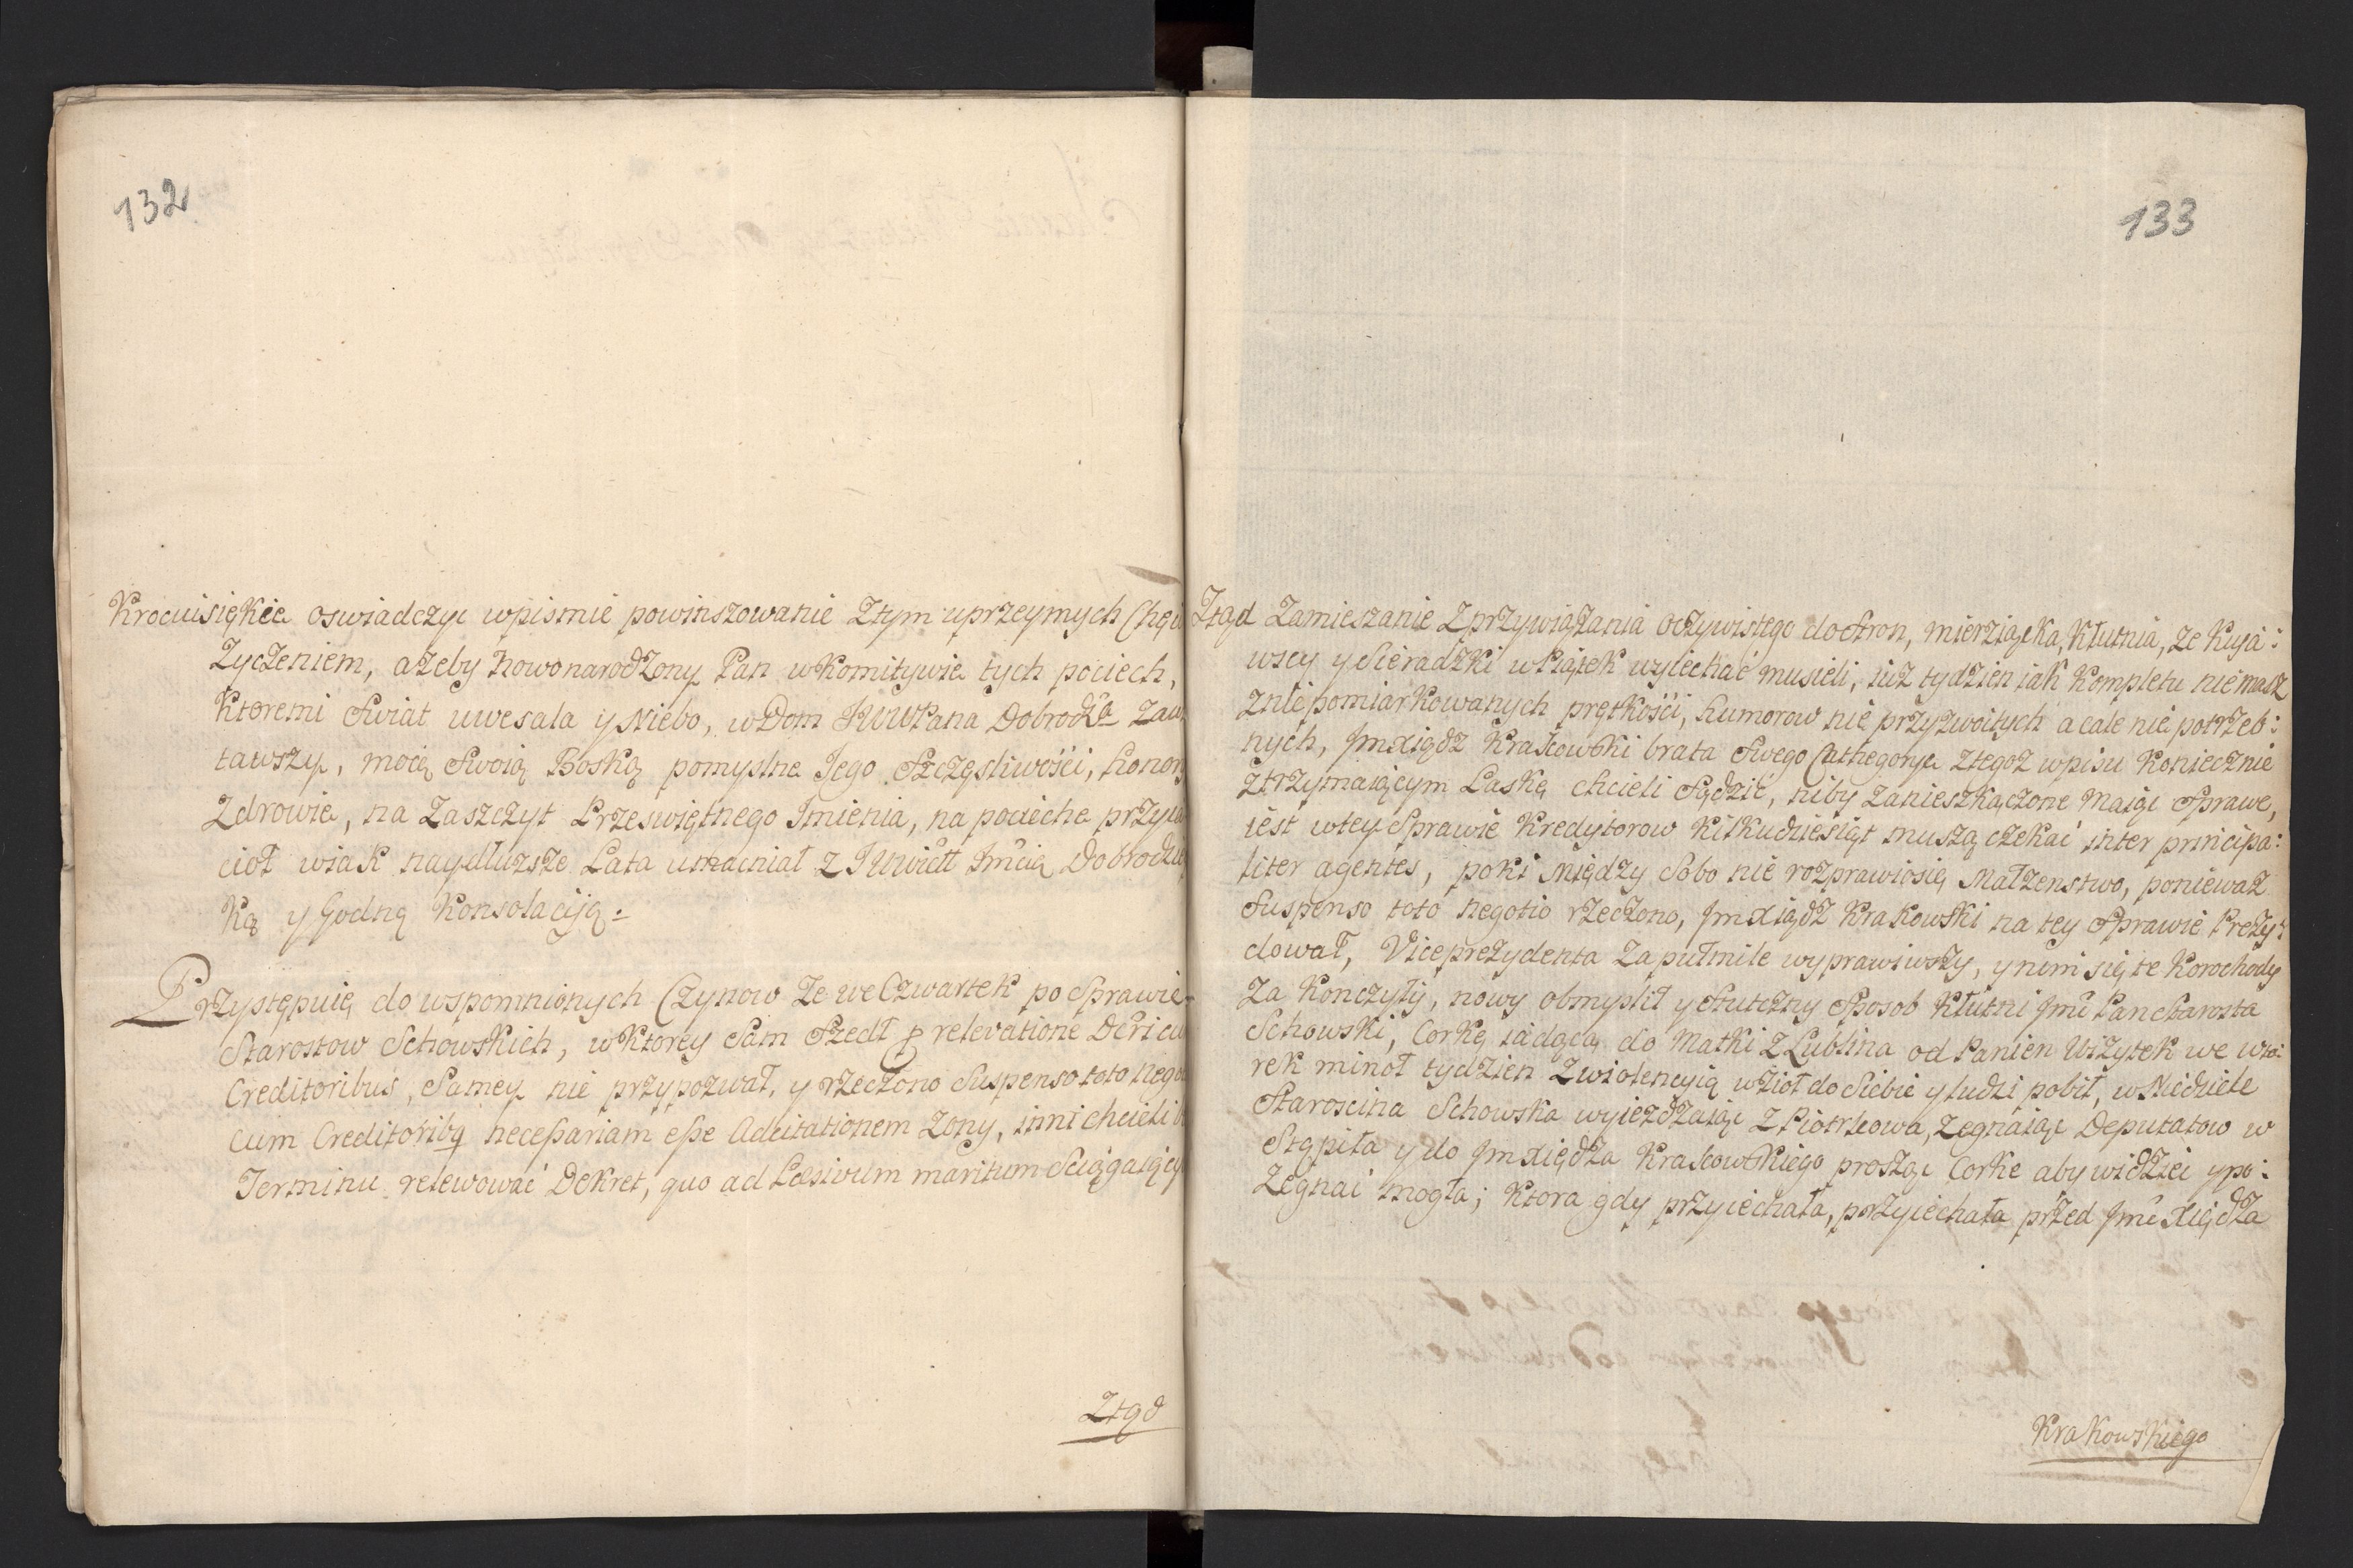 132
Krociusiękie oswiadczyc wpismie powinszowanie Ztym uprzeymych
Zyczeniem, azeby Nowonarodzony Pan wkomitywie tych pociech,
Ktoremi Swiat uwesala y Niebo, wDom JWWPana Dobrodza
tawszy, mocą Swoią Boską pomyslne Jego Szczęsliwości, honory
Zdrowie, na Zaszczyt Przeswiętnego Imienia, na pocieche przyia
ciol wiak naydłuzsze Lata umacniał z Jmcią
Ką y Godną Konsolacyją:
Przystępuię do wspomnionych Czynow Ze we Czwartek po Sprawie
Starostow Schowskich, wKtorey Sam Szedł p relevatione Dčři cu
Creditoribus, Samey nie przypozwał, y rzeczono Suspenso toto nego
cum Creditoribq necessariam esse Adcitationem Zony, inni chcieli
Terminu relewować Dekret, quo ad Læsivum maritum Sciągaiący
Ztąd
133
Ztąd Zamieszanie Z przywiązania Oczywistego do Stron, mierziączka, Kłutnia, ze Kuja:
wscy y Sieradzki wPiątek wyiechać musieli, iuż tydzien iak Kompletu niemasz
Zniepomiarkowanych prętkości, humorow nie przyzwoitych a cale nie potrzeb:
nych, Jmxiądz Krakowski brata Swego Cathegoryę Ztegoz wpisu Koniecznie
Ztrzymaiącym Laskę chcieli Sądzić, niby Zanieszkączone Maiąc Sprawe,
iest wtey Sprawie Kredytorow Kilkudziesiąt muszą czekać inter principa:
liter agentes, poki między Sobo nie rozprawiosię Małzenstwo, poniewaz
Suspenso toto negotio rzeczono, Jmxiądz Krakowski na tey Sprawie Prezy:
dował, Viceprezydenta Zapułmile wyprawiwszy, y nim się te Korochody
Za Konczyły, nowy obmyslił y Skuteczny Sposob Kłutni Jmć Pan Starosta
Schowski, Corkę iadącą do Matki Z Lublina od Panien Wizytek we wto:
rek minoł tydzien Zwiolencyią wziol do Siebie y ludzi pobił, wNiedziele
Staroscina Schowska wyiezdzaiąc Z Piotrkowa, Zegnaiąc Deputatow w
Stąpiła y do Jmxiędza Krakowskiego prosząc Corke aby widziec y po:
Zegnać mogła; Ktora gdy przyiechała, przyiechała przed Jmć Xiędza
Krakowskiego